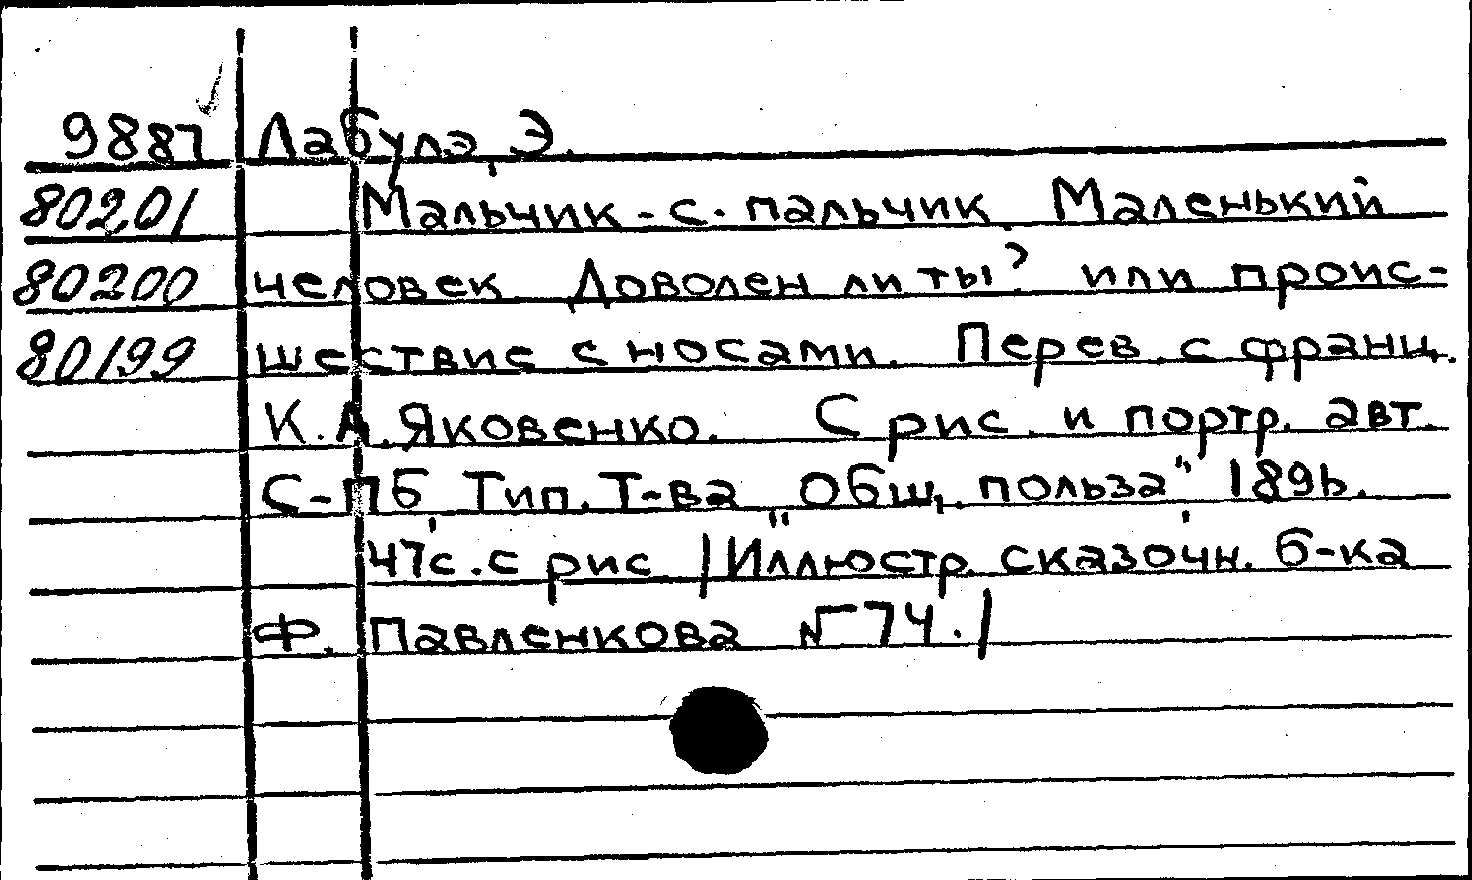 9887 Лабулэ, Э.
80201 Мальчик-с-пальчик. Маленький
80200 человек. Доволен ли ты? или проис-
80199 шествие с носами. Перев. с франц.
К.А. Яковенко. С рис. и портр. авт.
С-Пб, Тип. Т-ва "Общ. польза", 1896.
47с. с рис. /Иллюстр. сказочн. б-ка
Ф. Павленкова № 74./